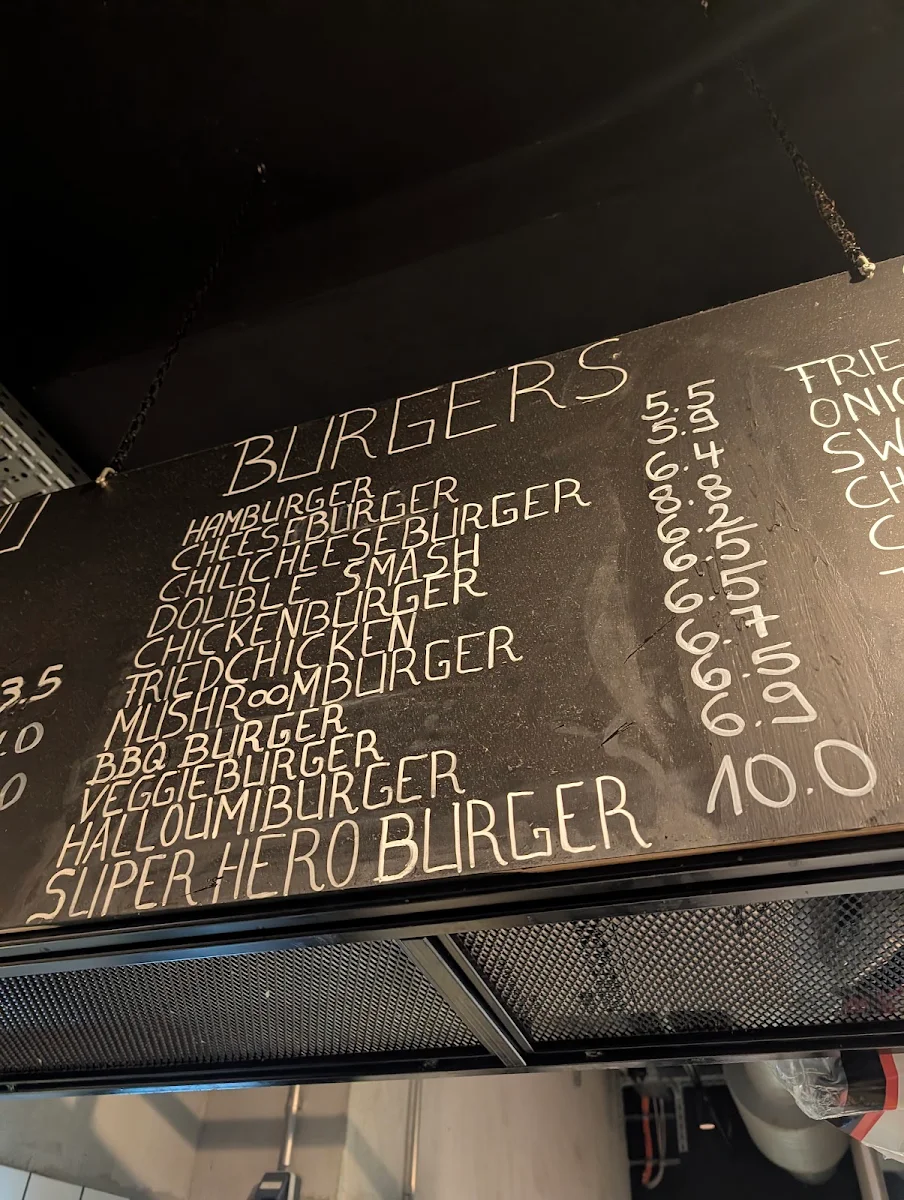 BURGERS
HAMBURGER 5.5
CHEESEBURGER 5.9
CHILICHEESEBURGER 6.4
DOUBLE SMASH 8.8
CHICKENBURGER 6.2
FRIEDCHICKEN 6.5
MUSHROOMBURGER 6.5
BBQ BURGER 6.7
VEGGIEBURGER 6.5
HALLOUMIBURGER 6.9
SUPER HERO BURGER 10.0
3.5
.0
0
FRIE
ONIO
SW
CH